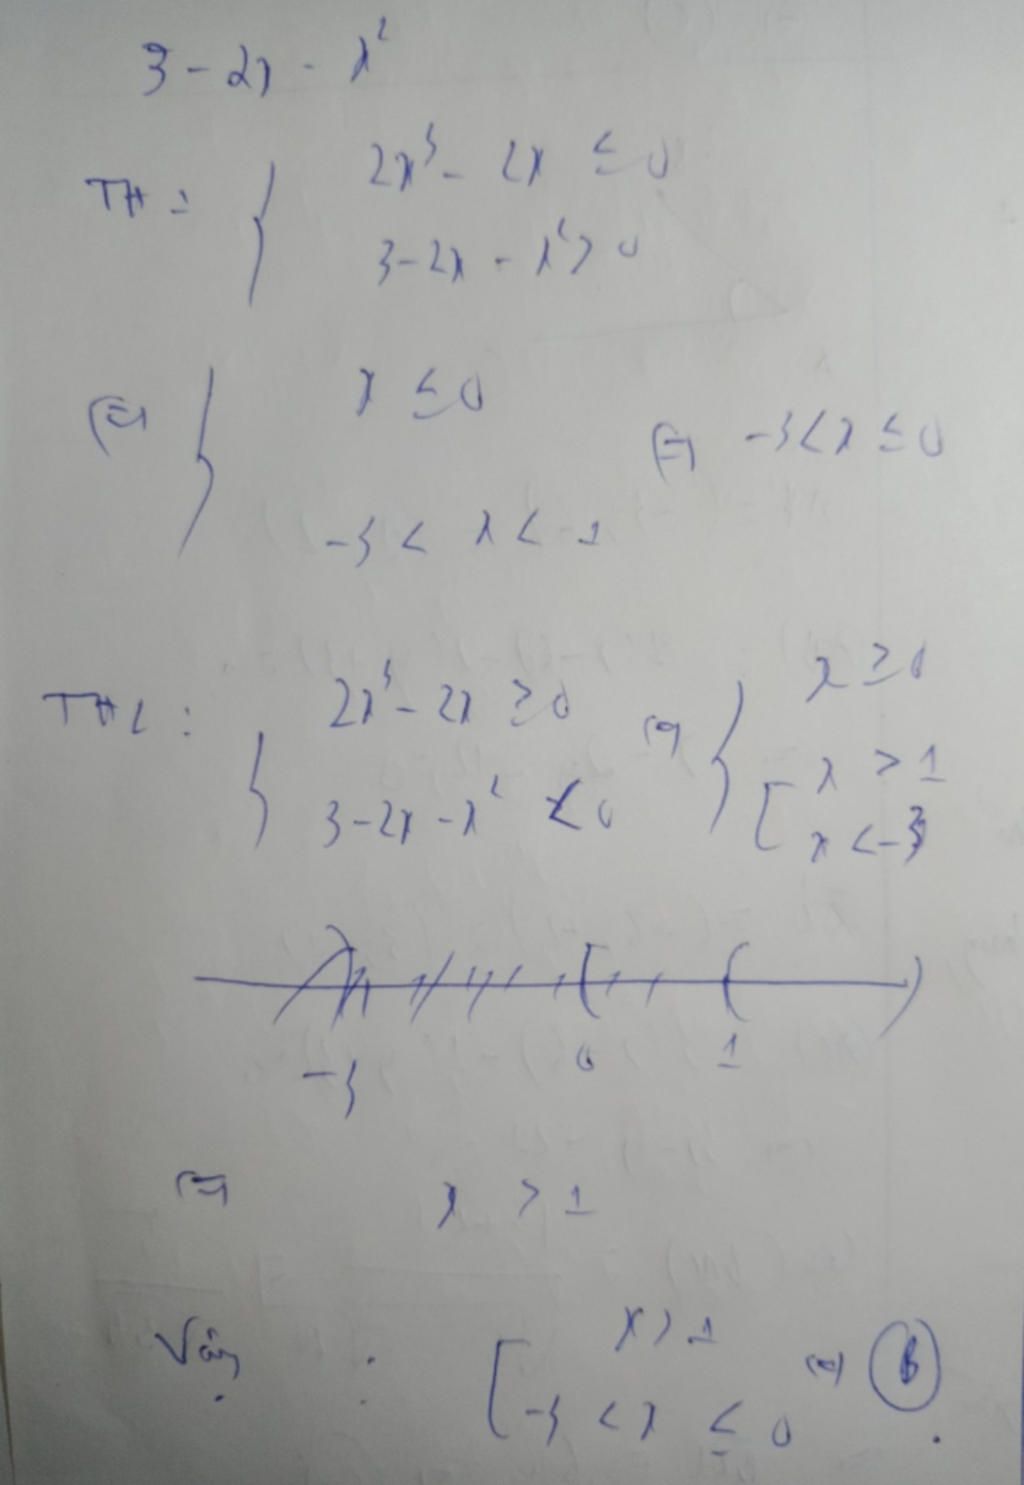 3 - 2x - x²
TH1: { 2x³ - 2x ≤ 0
3 - 2x - x² > 0
⇔ { x ≤ 0
-3 < x < 1 ⇔ -3 < x ≤ 0
TH2: { 2x³ - 2x ≥ 0
3 - 2x - x² < 0 ⇔ { x ≥ 0
[ x > 1
x < -3
-3 0 1
⇔ x > 1
Vậy : [ x > 1
-3 < x ≤ 0 ⇔ B.